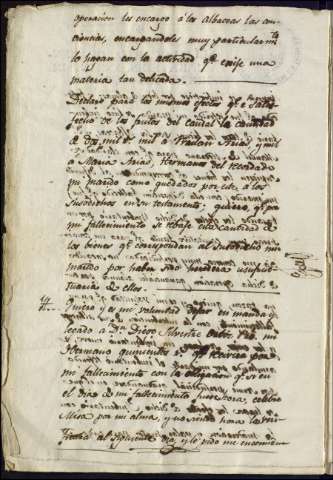 operacion les encargo á los Albaceas las con-
ciencias, encargandoles muy particularmte
lo hagan con la actividad qe exije una
materia tan delicada.
Declaro para los mismos efectos qe é satis-
fecho de los frutos del caudal la cantidad
de dos mil rs mil á Froilan Arias, y mil
á Maria Arias Hermanos del
mi marido como quedados por este á los
Susodichos en su testamento, quiero, qe por
mi fallecimiento se rebaje esta cantidad de
los bienes qe correspondan al mi
marido por haber sido heredera usufruc-
tuaria de ellos.
Quiero y es mi voluntad dejar en manda y
legado á Dn Diego Silvestre mi
Hermano quinientos rs qe recivira por
mi fallecimiento con la obligacion qe si en
el dia de mi fallecimiento fuere hora, celebre
Misa por mi alma, y no siendo hora la
al siguiente dia, y le pido me encomiende